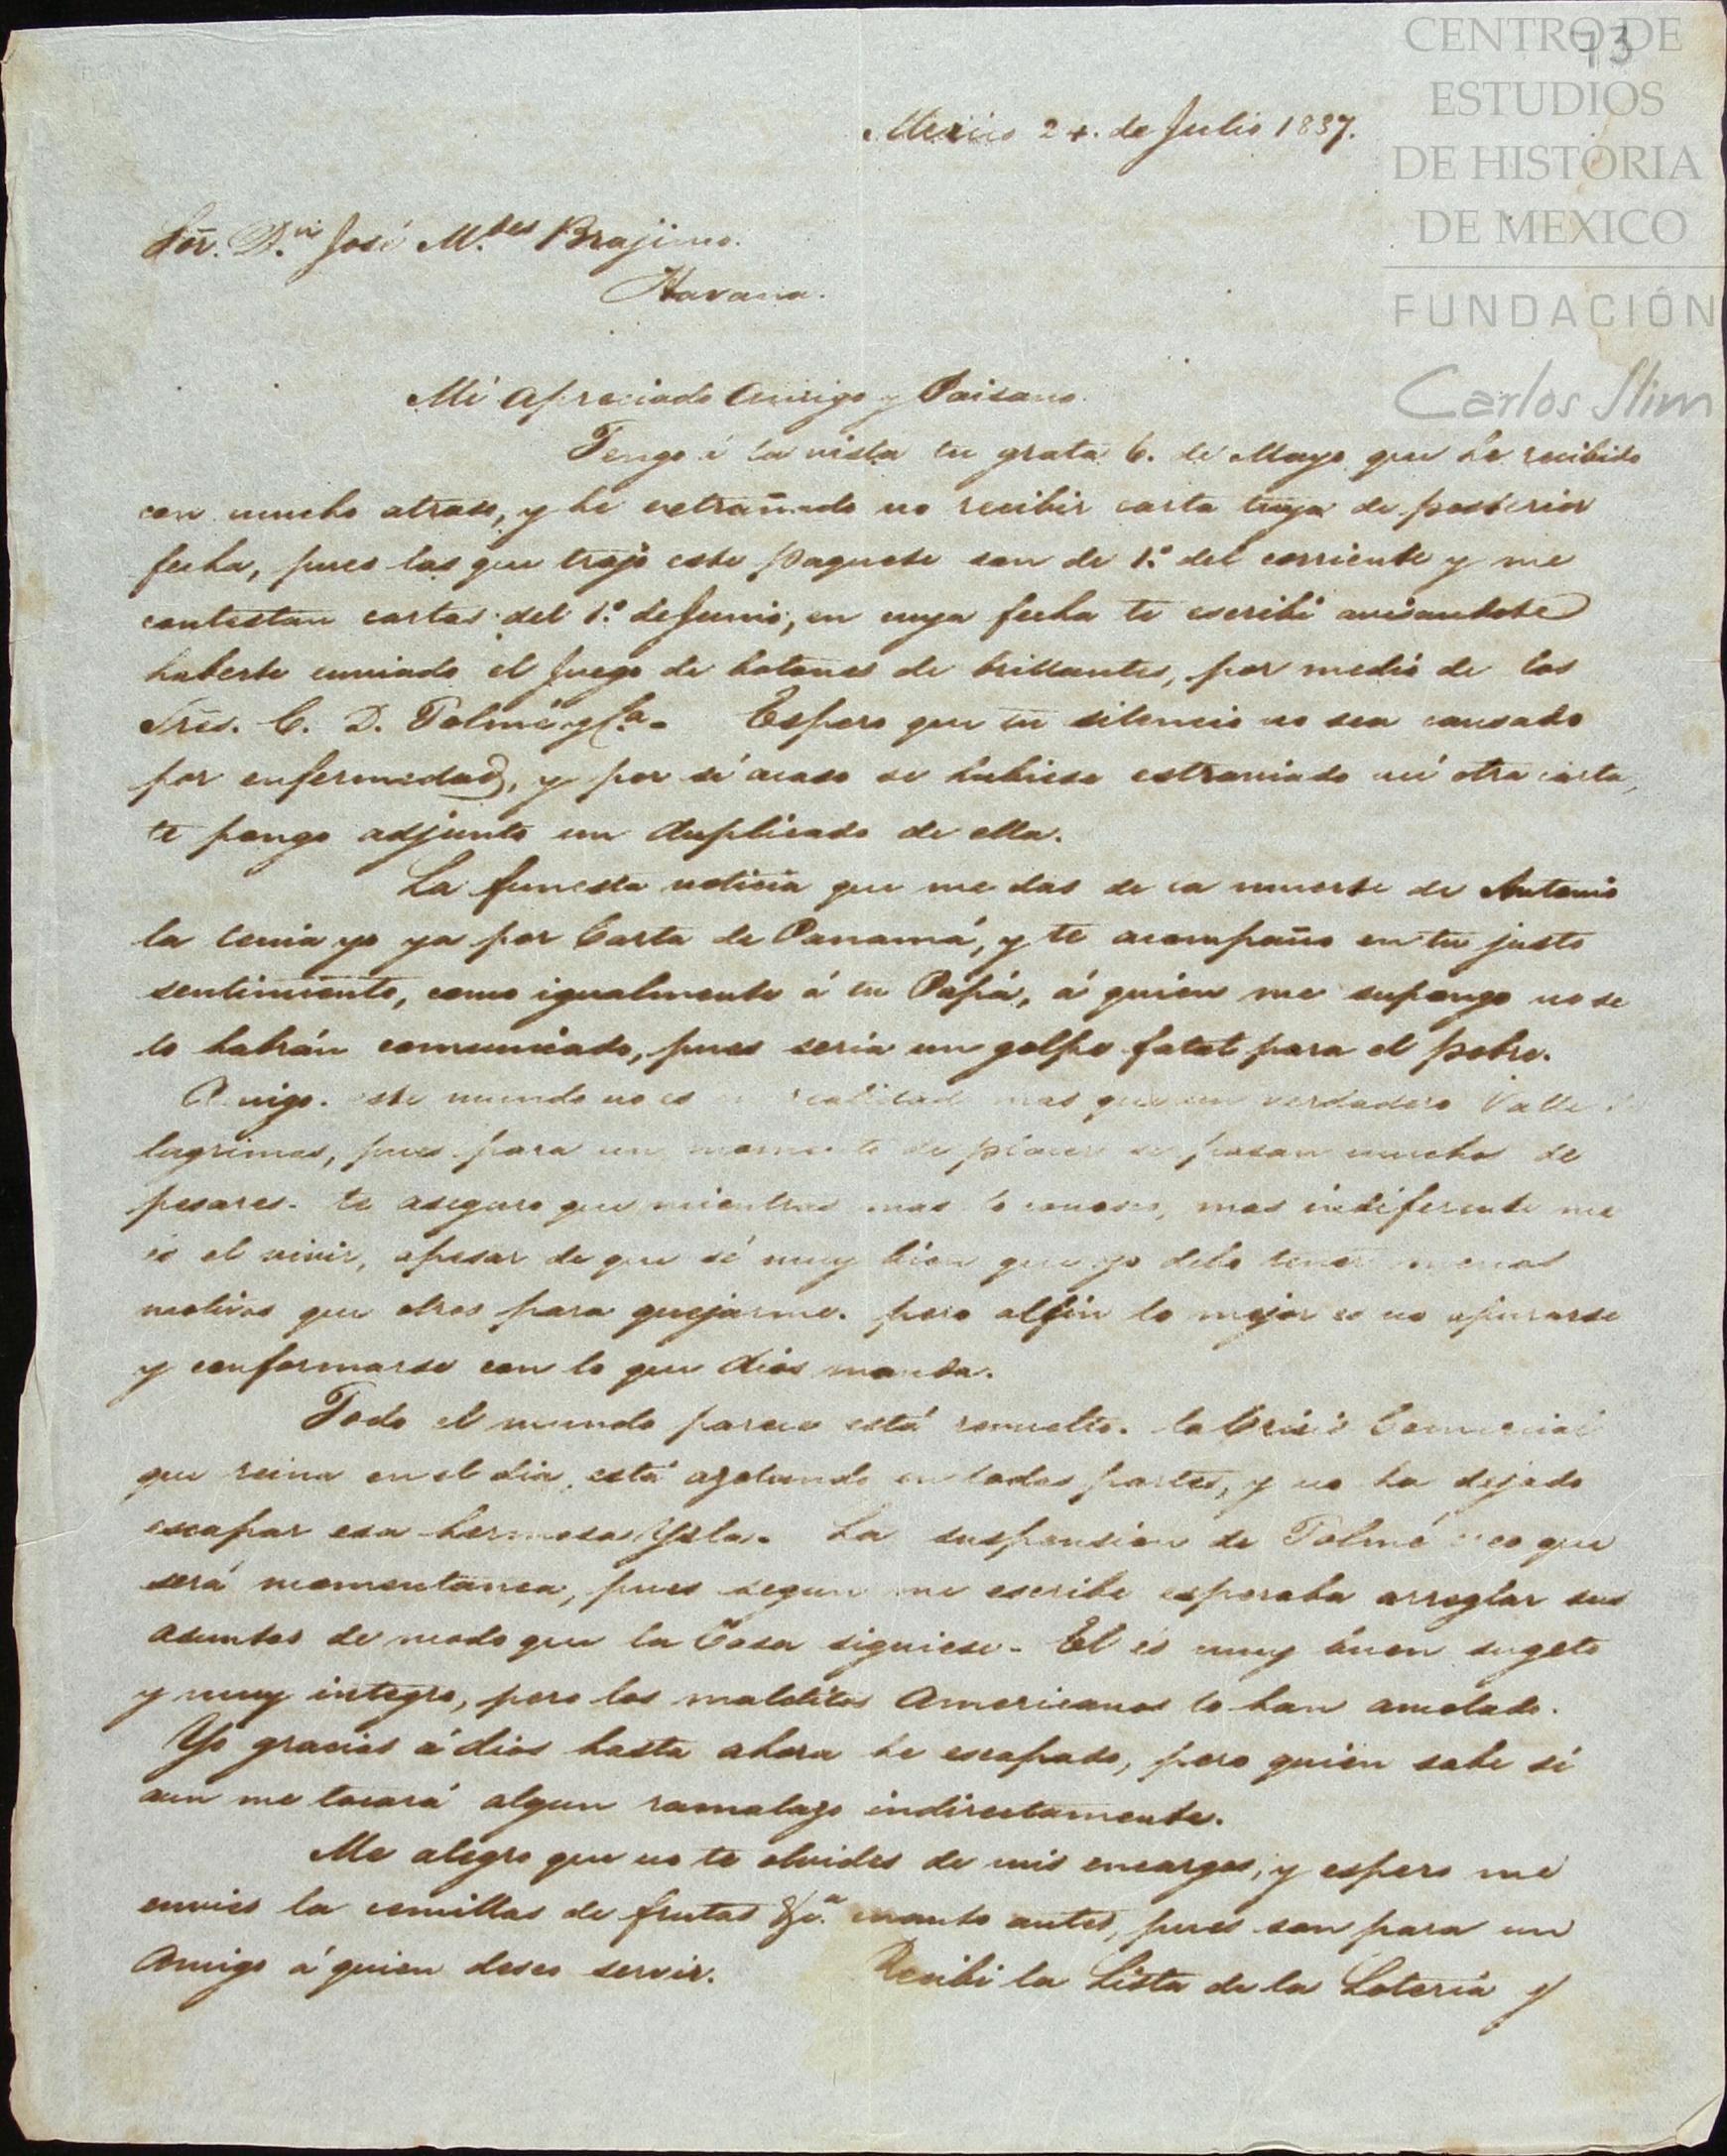 73
CENTRO DE
ESTUDIOS
DE HISTORIA
DE MEXICO
FUNDACIÓN
Carlos Slim
Mexico 24. de Julio 1837.
Sor. Dn. José M.des Brajimo.
Havana.
Mi apreciado Amigo y Paisano.
Tengo á la vista tu grata 6. de Mayo que he recibido
con mucho atraso, y he extrañado no recibir carta tuya de posterior
fecha, pues las que trajo este paquete son de 1.º del corriente y me
contestan cartas del 1.º de Junio, en cuya fecha te escribí avisandote
haberte enviado el Juego de botones de brillantes, por medio de los
Sres. C. D. Tolmé y Ca. Espero que tu silencio no sea causado
por enfermedad, y por si acaso se hubiese estraviado mi otra carta,
te pongo adjunto un duplicado de ella.
La funesta noticia que me das de la muerte de Antonio
la tenia yo ya por Carta de Panamá, y te acompaño en tu justo
sentimiento, como igualmente á tu Papá, á quien me supongo no se
lo habrán comunicado, pues seria un golpe fatal para el pobre.
Amigo. este mundo no es en realidad mas que un verdadero Valle de
lagrimas, pues para un momento de placer se pasan muchos de
pesares. te aseguro que mientras mas lo conosco, mas indiferente me
és el vivir, apesar de que sé muy bien que yo debo tener menos
motivos que otros para quejarme. pero alfin lo mejor es no apurarse
y conformarse con lo que dios manda.
Todo el mundo parece está revuelto. la Crisis Comercial
que reina en el dia, está azotando en todas partes, y no ha dejado
escapar esa hermosa Ysla. La suspension de Tolmé creo que
será momentanea, pues segun me escribe esperaba arreglar sus
asuntos de modo que la Casa siguiese. El és muy buen sugeto
y muy integro, pero los malditos Americanos lo han amolado.
Yo gracias á dios hasta ahora he escapado, pero quien sabe si
aun me tocará algun ramalazo indirectamente.
Me alegro que no te olvides de mis encargos, y espero me
envies la semillas de frutas &a. cuanto antes, pues son para un
Amigo á quien deseo servir. Recibi la Lista de la Loteria y